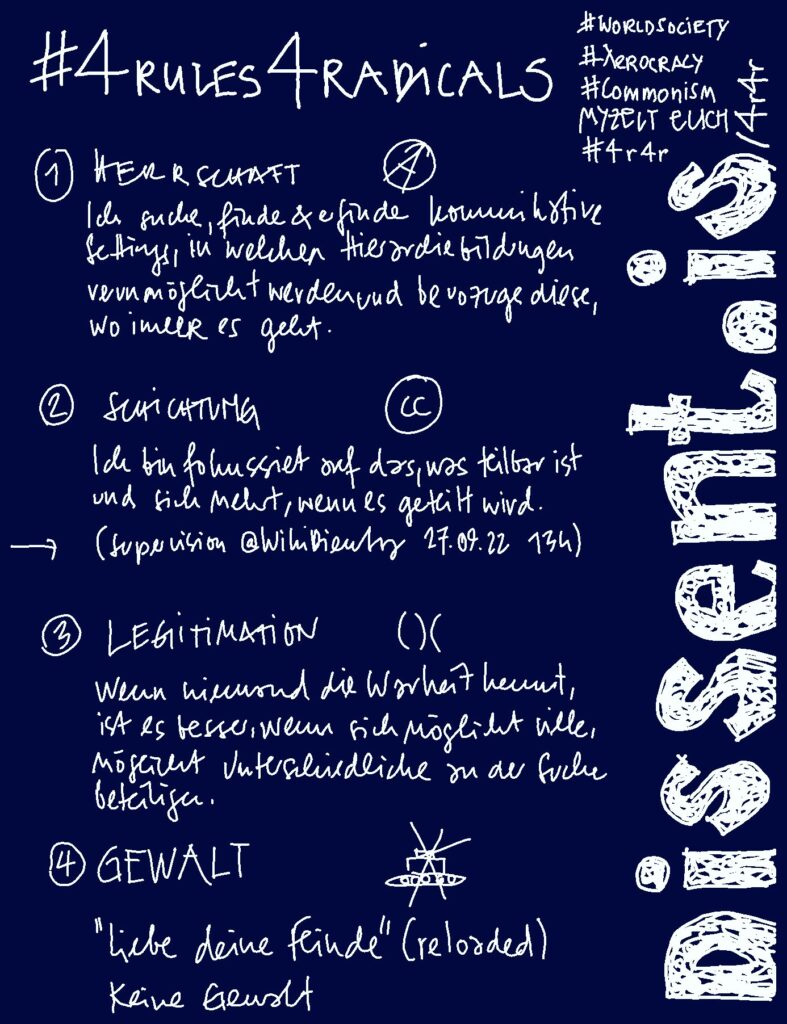 #4RULES4RADICALS
#WORLDSOCIETY
#XEROCRACY
#COMMONISM
MYZELT EUCH
#4r4r
① HERRSCHAFT Ⓐ
Ich suche, finde & erfinde kommunikative
Settings, in welchen Hierarchiebildungen
verunmöglicht werden und bevozuge diese,
wo immer es geht.
② SCHICHTUNG CC
Ich bin fokussiet auf das, was teilbar ist
und sich mehrt, wenn es geteilt wird.
→ (Supervision @WikiDienstag 27.09.22 13h)
③ LEGITIMATION ()(
Wenn niemand die Warheit kennt,
ist es besser, wenn sich möglicht viele,
möglicht Unterschiedliche an der Suche
beteiligen.
④ GEWALT
"Liebe deine Feinde" (reloaded)
Keine Gewalt
Dissent.is/4r4r